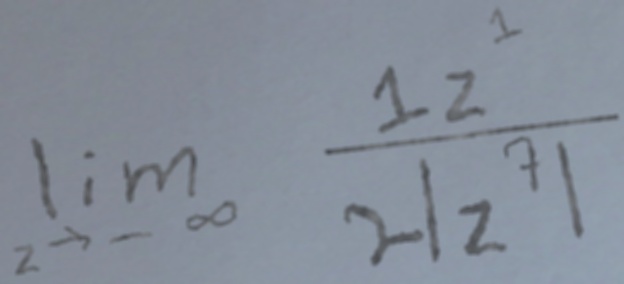 lim_{z→-∞} \frac{1z^1}{2|z^7|}